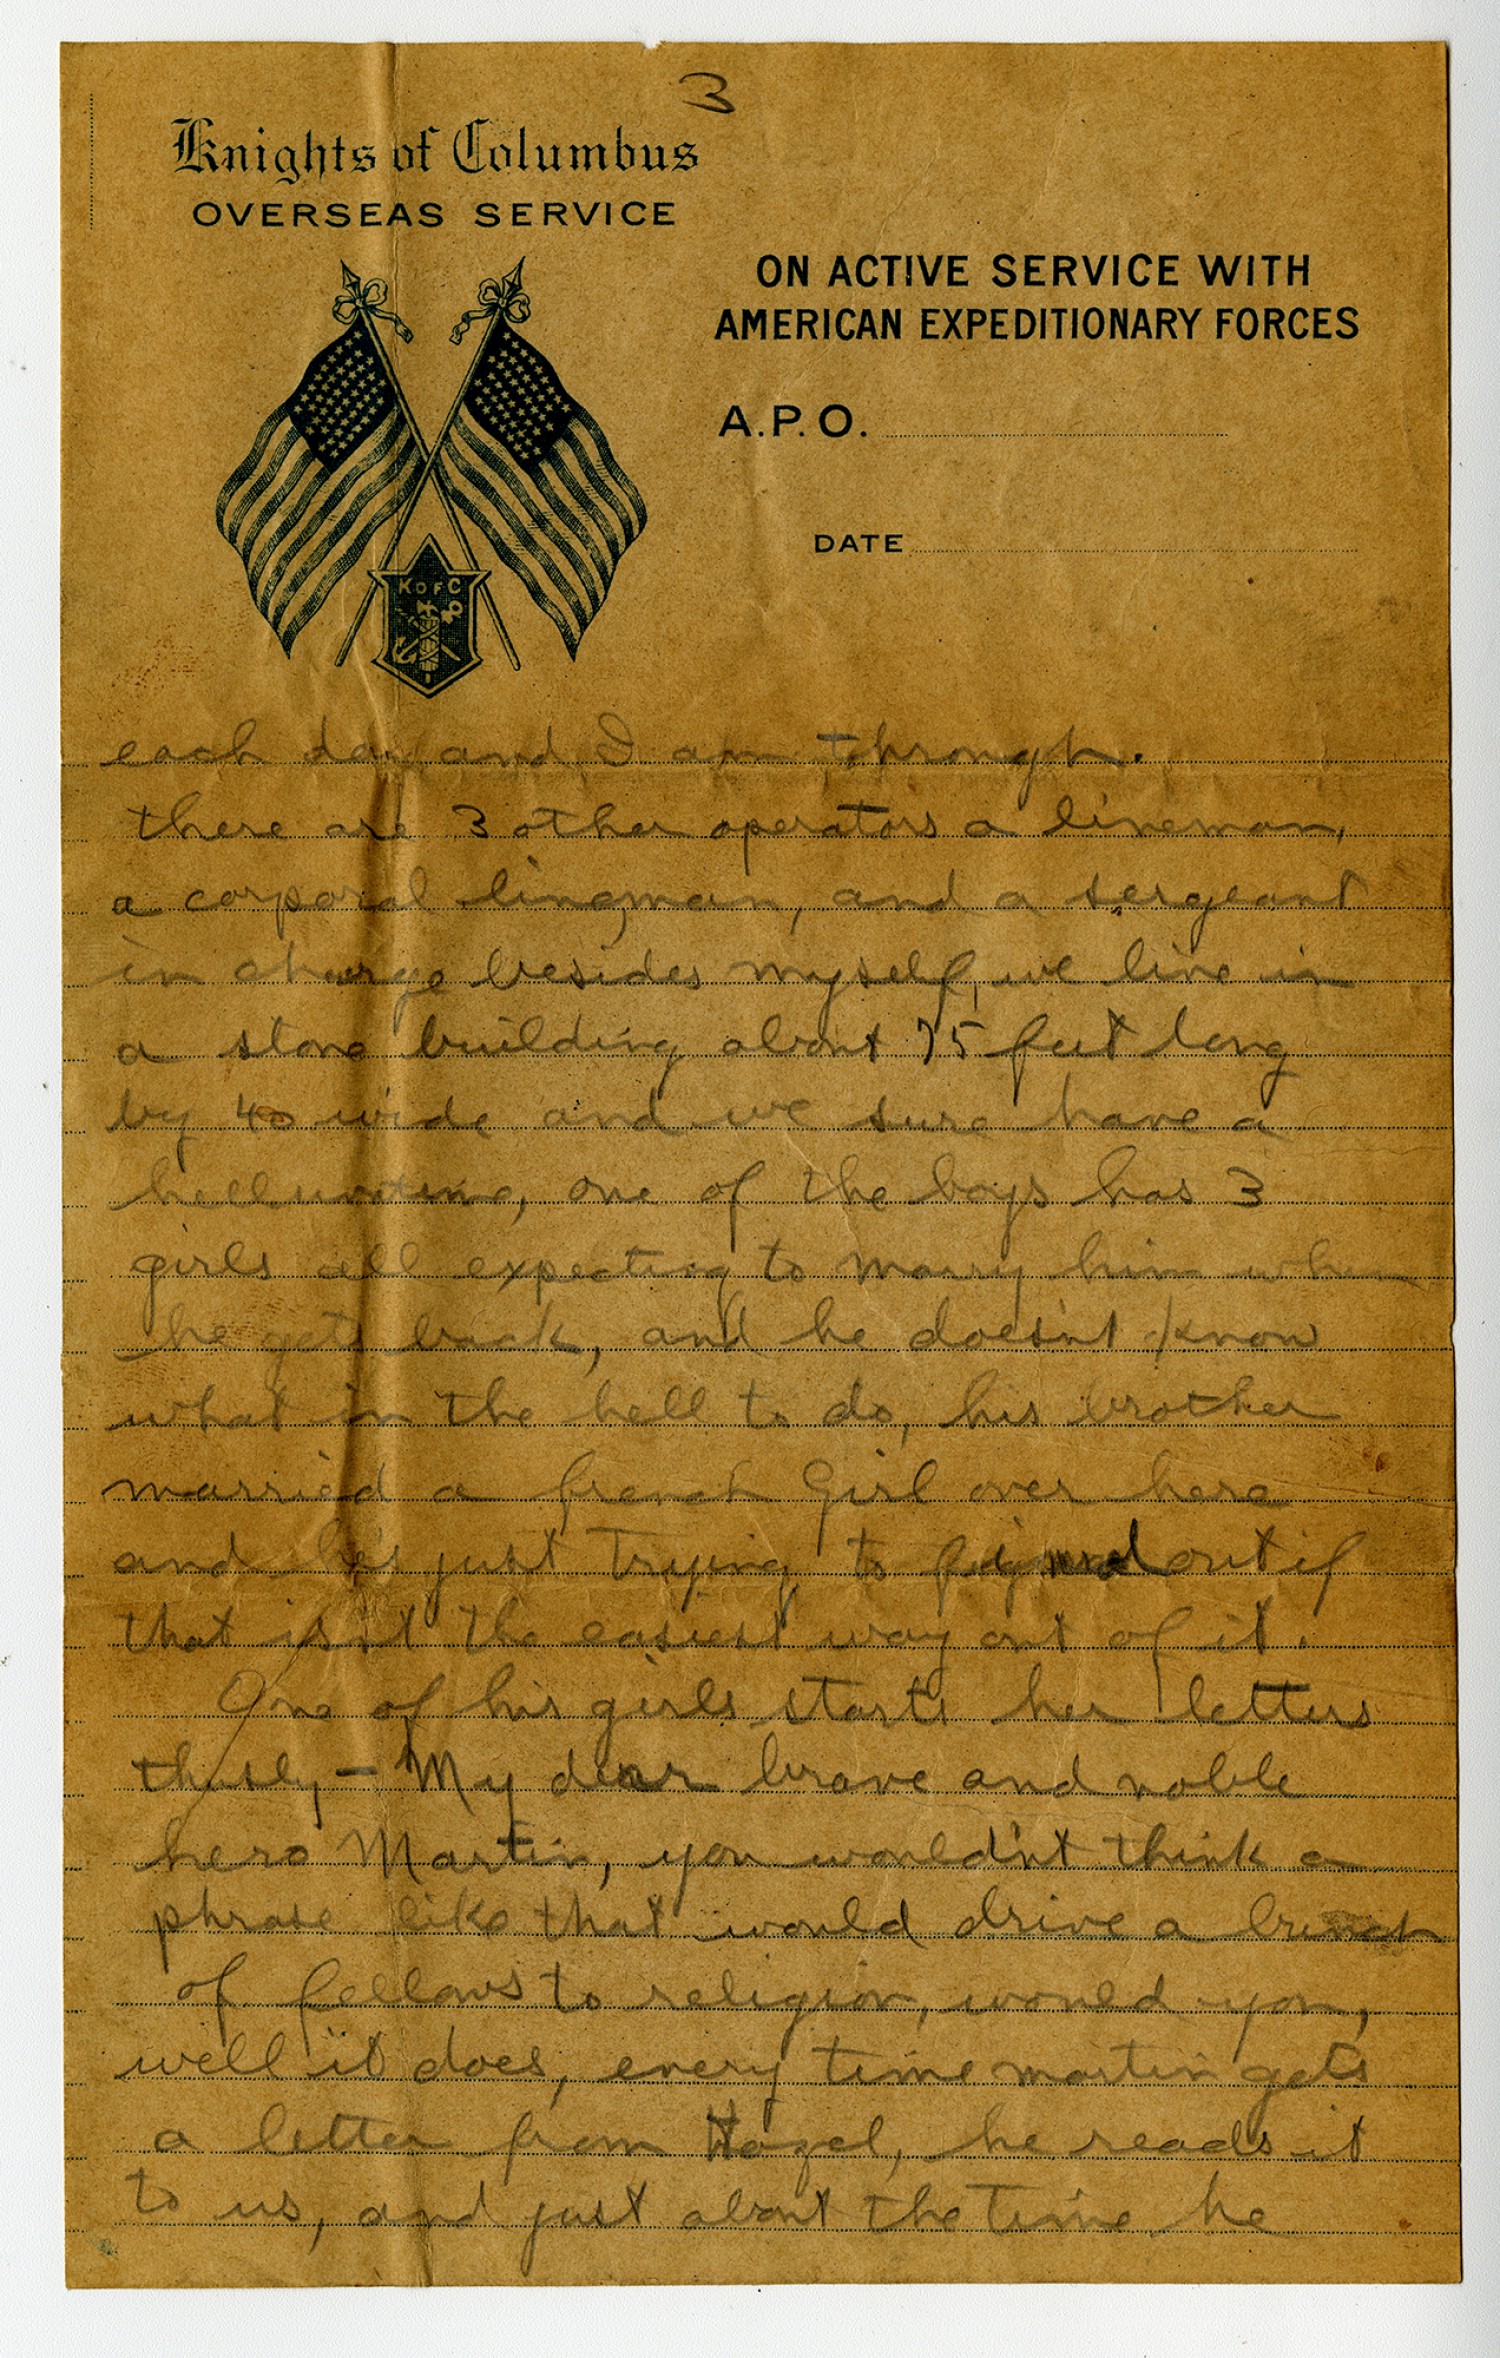 3
Knights of Columbus
OVERSEAS SERVICE
ON ACTIVE SERVICE WITH
AMERICAN EXPEDITIONARY FORCES
A.P.O.
DATE
K OF C
each day and I am through.
there are 3 other operators a lineman,
a corporal lineman, and a sergeant
in charge besides myself, we live in
a stone building about 75 feet long
by 40 wide and we sure have a
helluvatime, one of the boys has 3
girls all expecting to marry him when
he gets back, and he doesn't know
what in the hell to do, his brother
married a french Girl over here
and he's just trying to out if
that isn't the easiest way out of it.
One of his girls starts her letters
thusly, - My dear brave and noble
hero Martin, you wouldn't think a
phrase like that would drive a bunch
of fellows to religion, would you,
well it does, every time martin gets
a letter from Hazel, he reads it
to us, and just about the time he